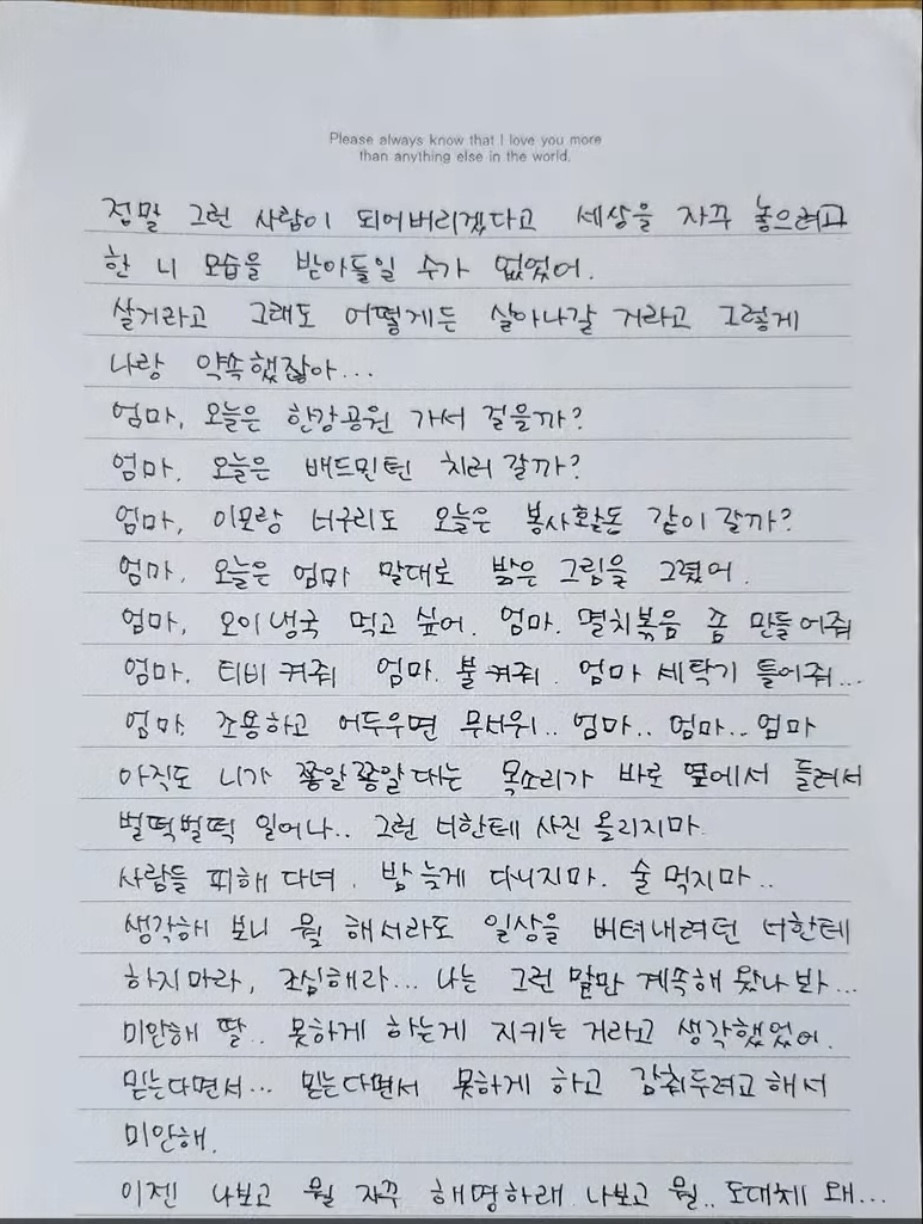 Please always know that I love you more
than anything else in the world.
정말 그런 사람이 되어버리겠다고 세상을 자꾸 놓으려고
한 니 모습을 받아들일 수가 없었어.
살거라고 그래도 어떻게든 살아나갈 거라고 그렇게
나랑 약속했잖아...
엄마, 오늘은 한강공원 가서 걸을까?
엄마, 오늘은 배드민턴 치러 갈까?
엄마, 이모랑 너구리도 오늘은 봉사활동 같이 갈까?
엄마, 오늘은 엄마 말대로 밝은 그림을 그렸어.
엄마, 오이냉국 먹고 싶어. 엄마. 멸치볶음 좀 만들어줘
엄마. 티비 켜줘 엄마. 불 켜줘. 엄마 세탁기 틀어줘...
엄마. 조용하고 어두우면 무서워.. 엄마.. 엄마... 엄마
아직도 니가 쫑알쫑알대는 목소리가 바로 옆에서 들려서
벌떡벌떡 일어나.. 그런 너한테 사진 올리지마.
사람들 피해 다녀. 밤 늦게 다니지마. 술 먹지마..
생각해 보니 뭘 해서라도 일상을 버텨내려던 너한테
하지마라, 조심해라... 나는 그런 말만 계속해 왔나 봐...
미안해 딸.. 못하게 하는게 지키는 거라고 생각했었어.
믿는다면서... 믿는다면서 못하게 하고 감춰두려고 해서
미안해.
이젠 나보고 뭘 자꾸 해명하래. 나보고 뭘.. 도대체 왜...